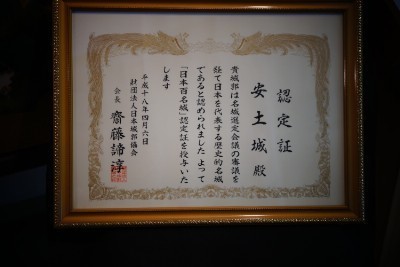 認定証
安土城殿
貴城郭は名城選定会議の審議を
経て日本を代表する歴史的名城
であると認められました よって
「日本百名城」認定証を授与いた
します
平成十八年四月六日
社団法人日本城郭協会
会長 齋藤諦淳